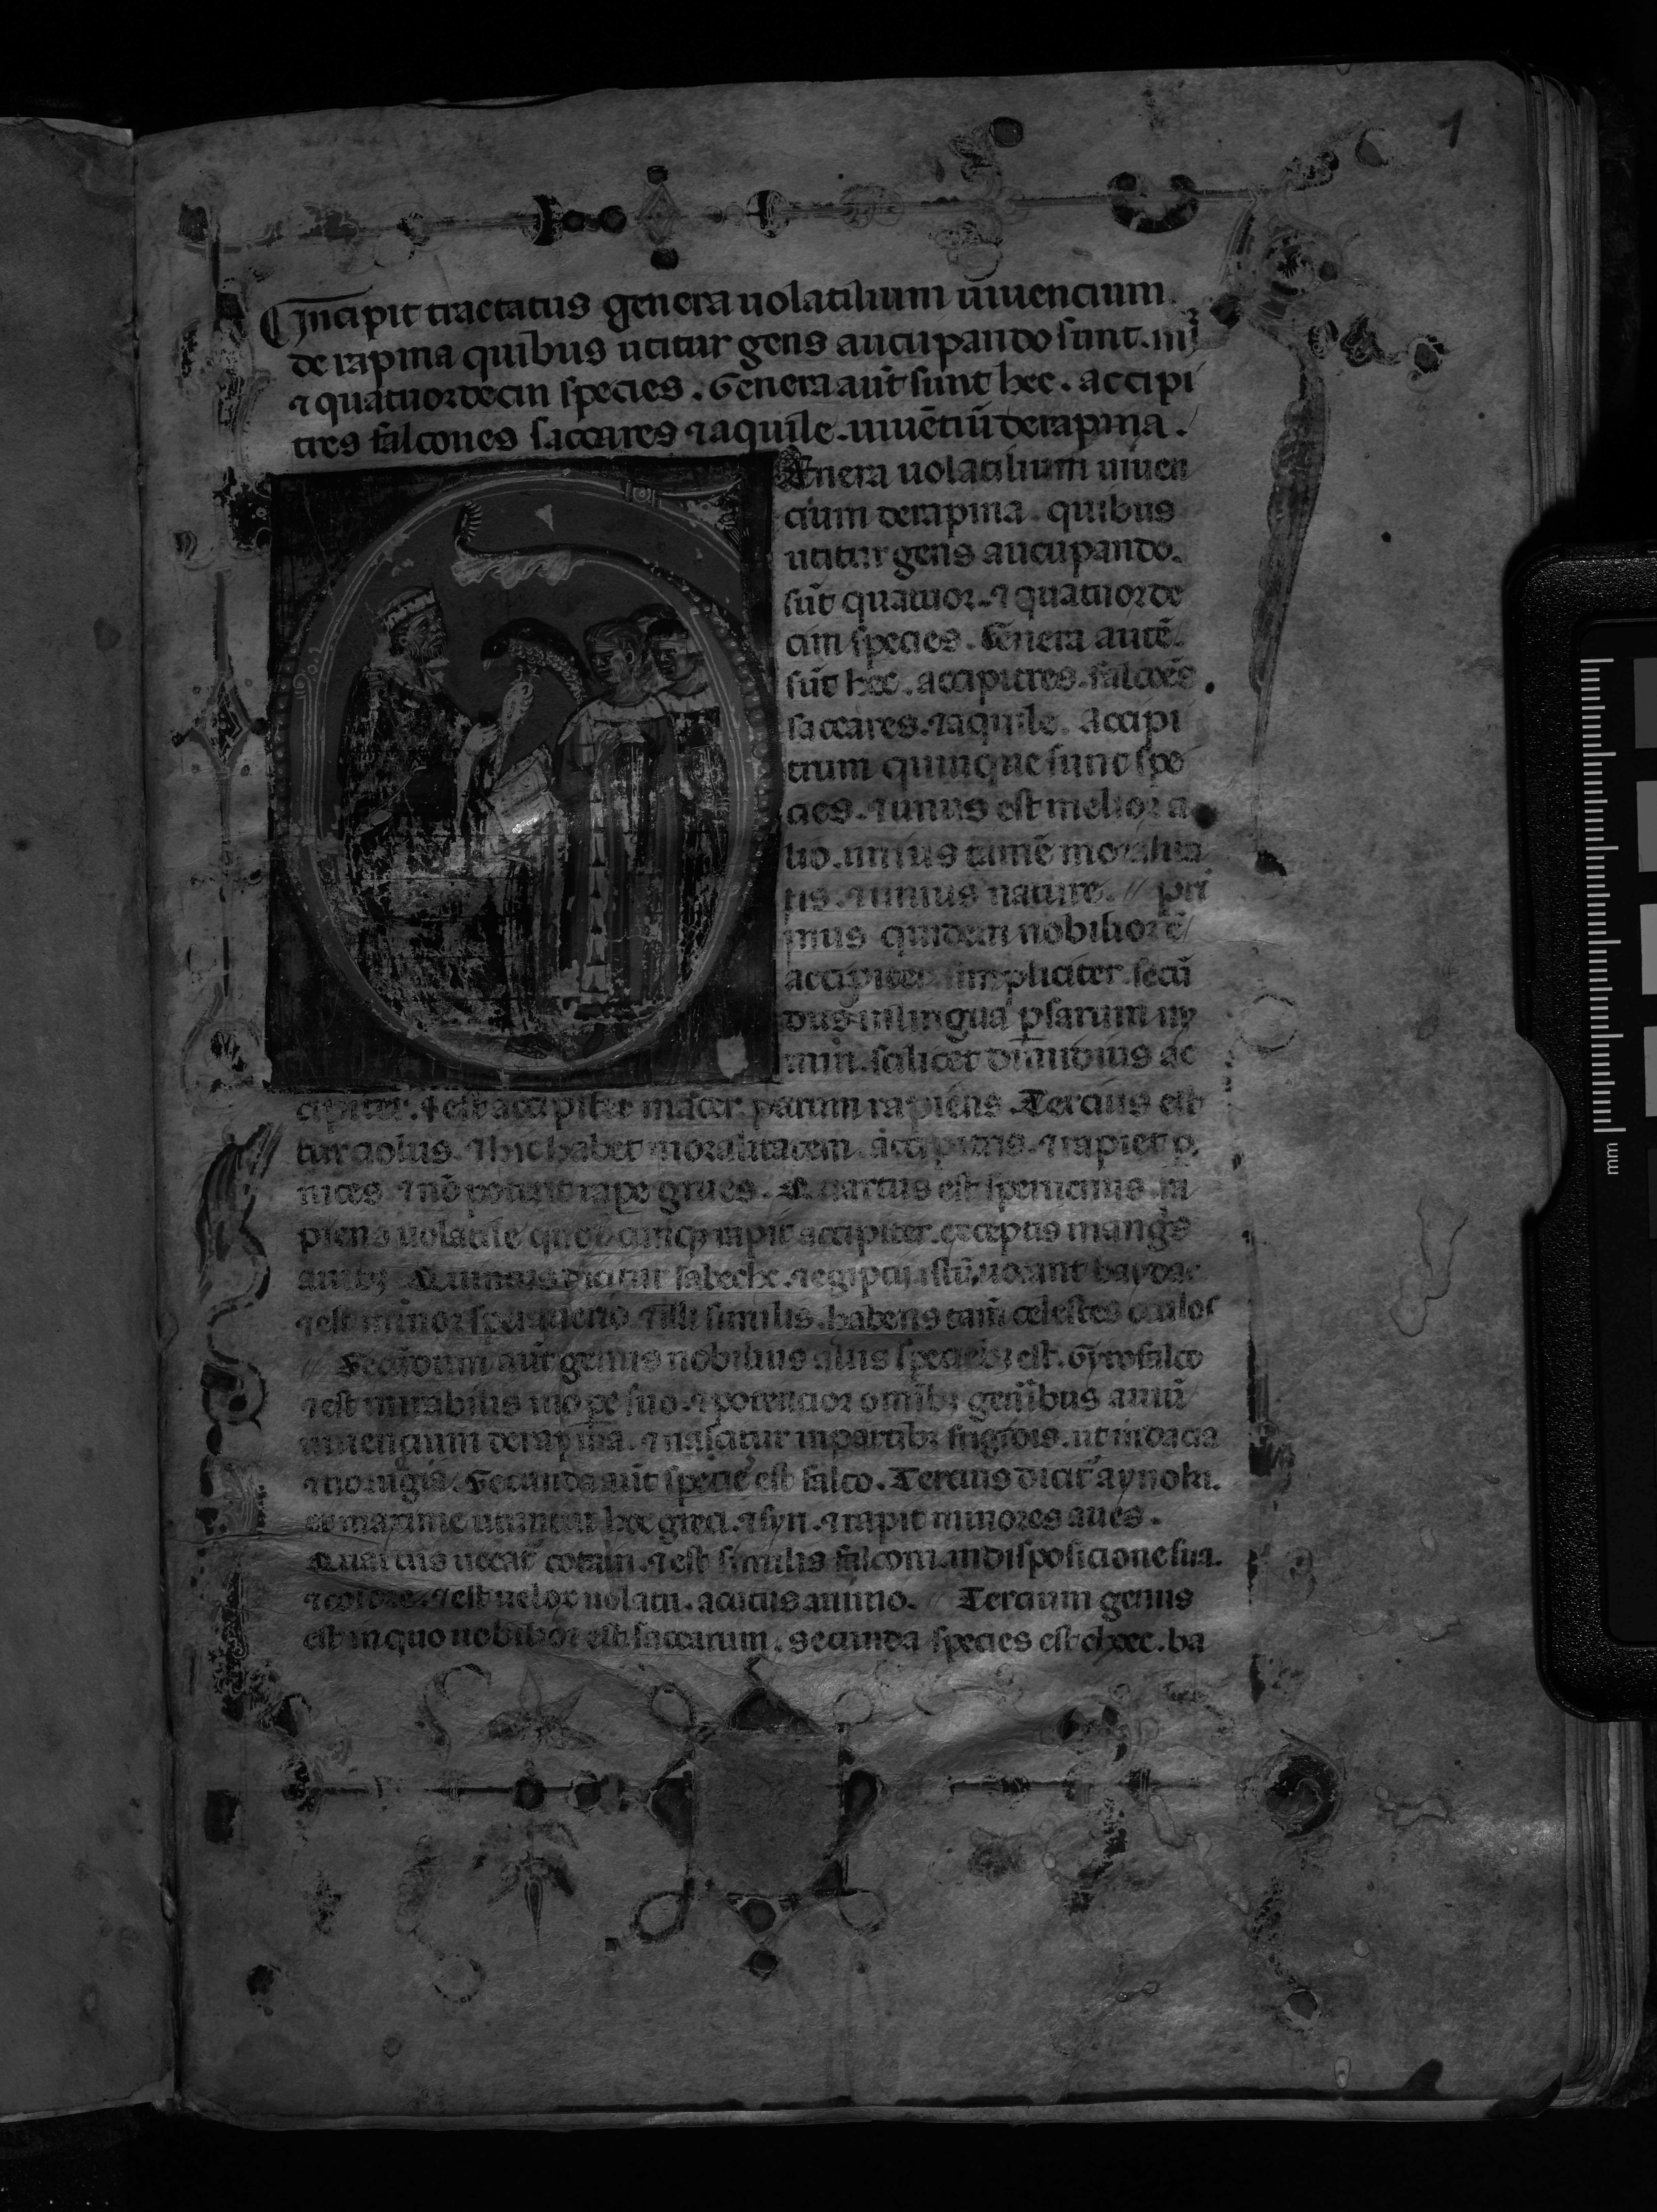 1
Incipit tractatus genera uolatilium uiuencium
de rapina quibus utitur gens aucupando sunt. iiijͦʳ
⁊ quatuordecim species. Genera aut̄ sunt hec. accipi
tres falcones saccares ⁊ aquile. uiuētiū de rapina.
Enera uolatilium uiuen
cium de rapina. quibus
utitur gens aucupando.
sūt quatuor. ⁊ quatuorde
cim species. Genera autē.
sūt hec. accipitres. falcōes.
saccares. ⁊ aquile. Accipi
trum quinque sunt spe
cies. ⁊ unus est melior a
lio. unius tamē moralita
tis. ⁊ unius nature. // pri
mus quidem nobilior ē/
accipiter simpliciter. secū
dus in lingua ꝑsarum
scilicet dimidius ac
cipiter. ⁊ est accipiter macer. parum rapiens. Tercius est
⁊ hic habet moralitatem. accipitris. ⁊ rapiet
⁊ nō poterit rapꝰe grues. Quartus est
piens uolatile accipiter. exceptis
auibꝫ Quintus dicitur sabeche. ⁊ egiptij istū uocant baydac
⁊ est minor ⁊ illi similis. habens tam̄ celestes oculos
// Secūdum aut̄ genus nobilius est. Gyrofalco
⁊ est mirabilis ⁊ potencior omībꝫ genībus auiū
uiuencium de rapina. ⁊ nascitur in partibꝫ frigidis. ut in dacia
Secunda aut̄ est falco. Tercius dicit᷑ aynoki.
maxime utuntur hoc greci. ⁊ rapit minores aues.
Quartus uocat᷑ ⁊ est similis falconi. in disposicione sua.
⁊ colore. ⁊ est uelox uolatu. acutus animo. // Tercium genus
est in quo nobilior est saccarum. Secunda species est ba
mm